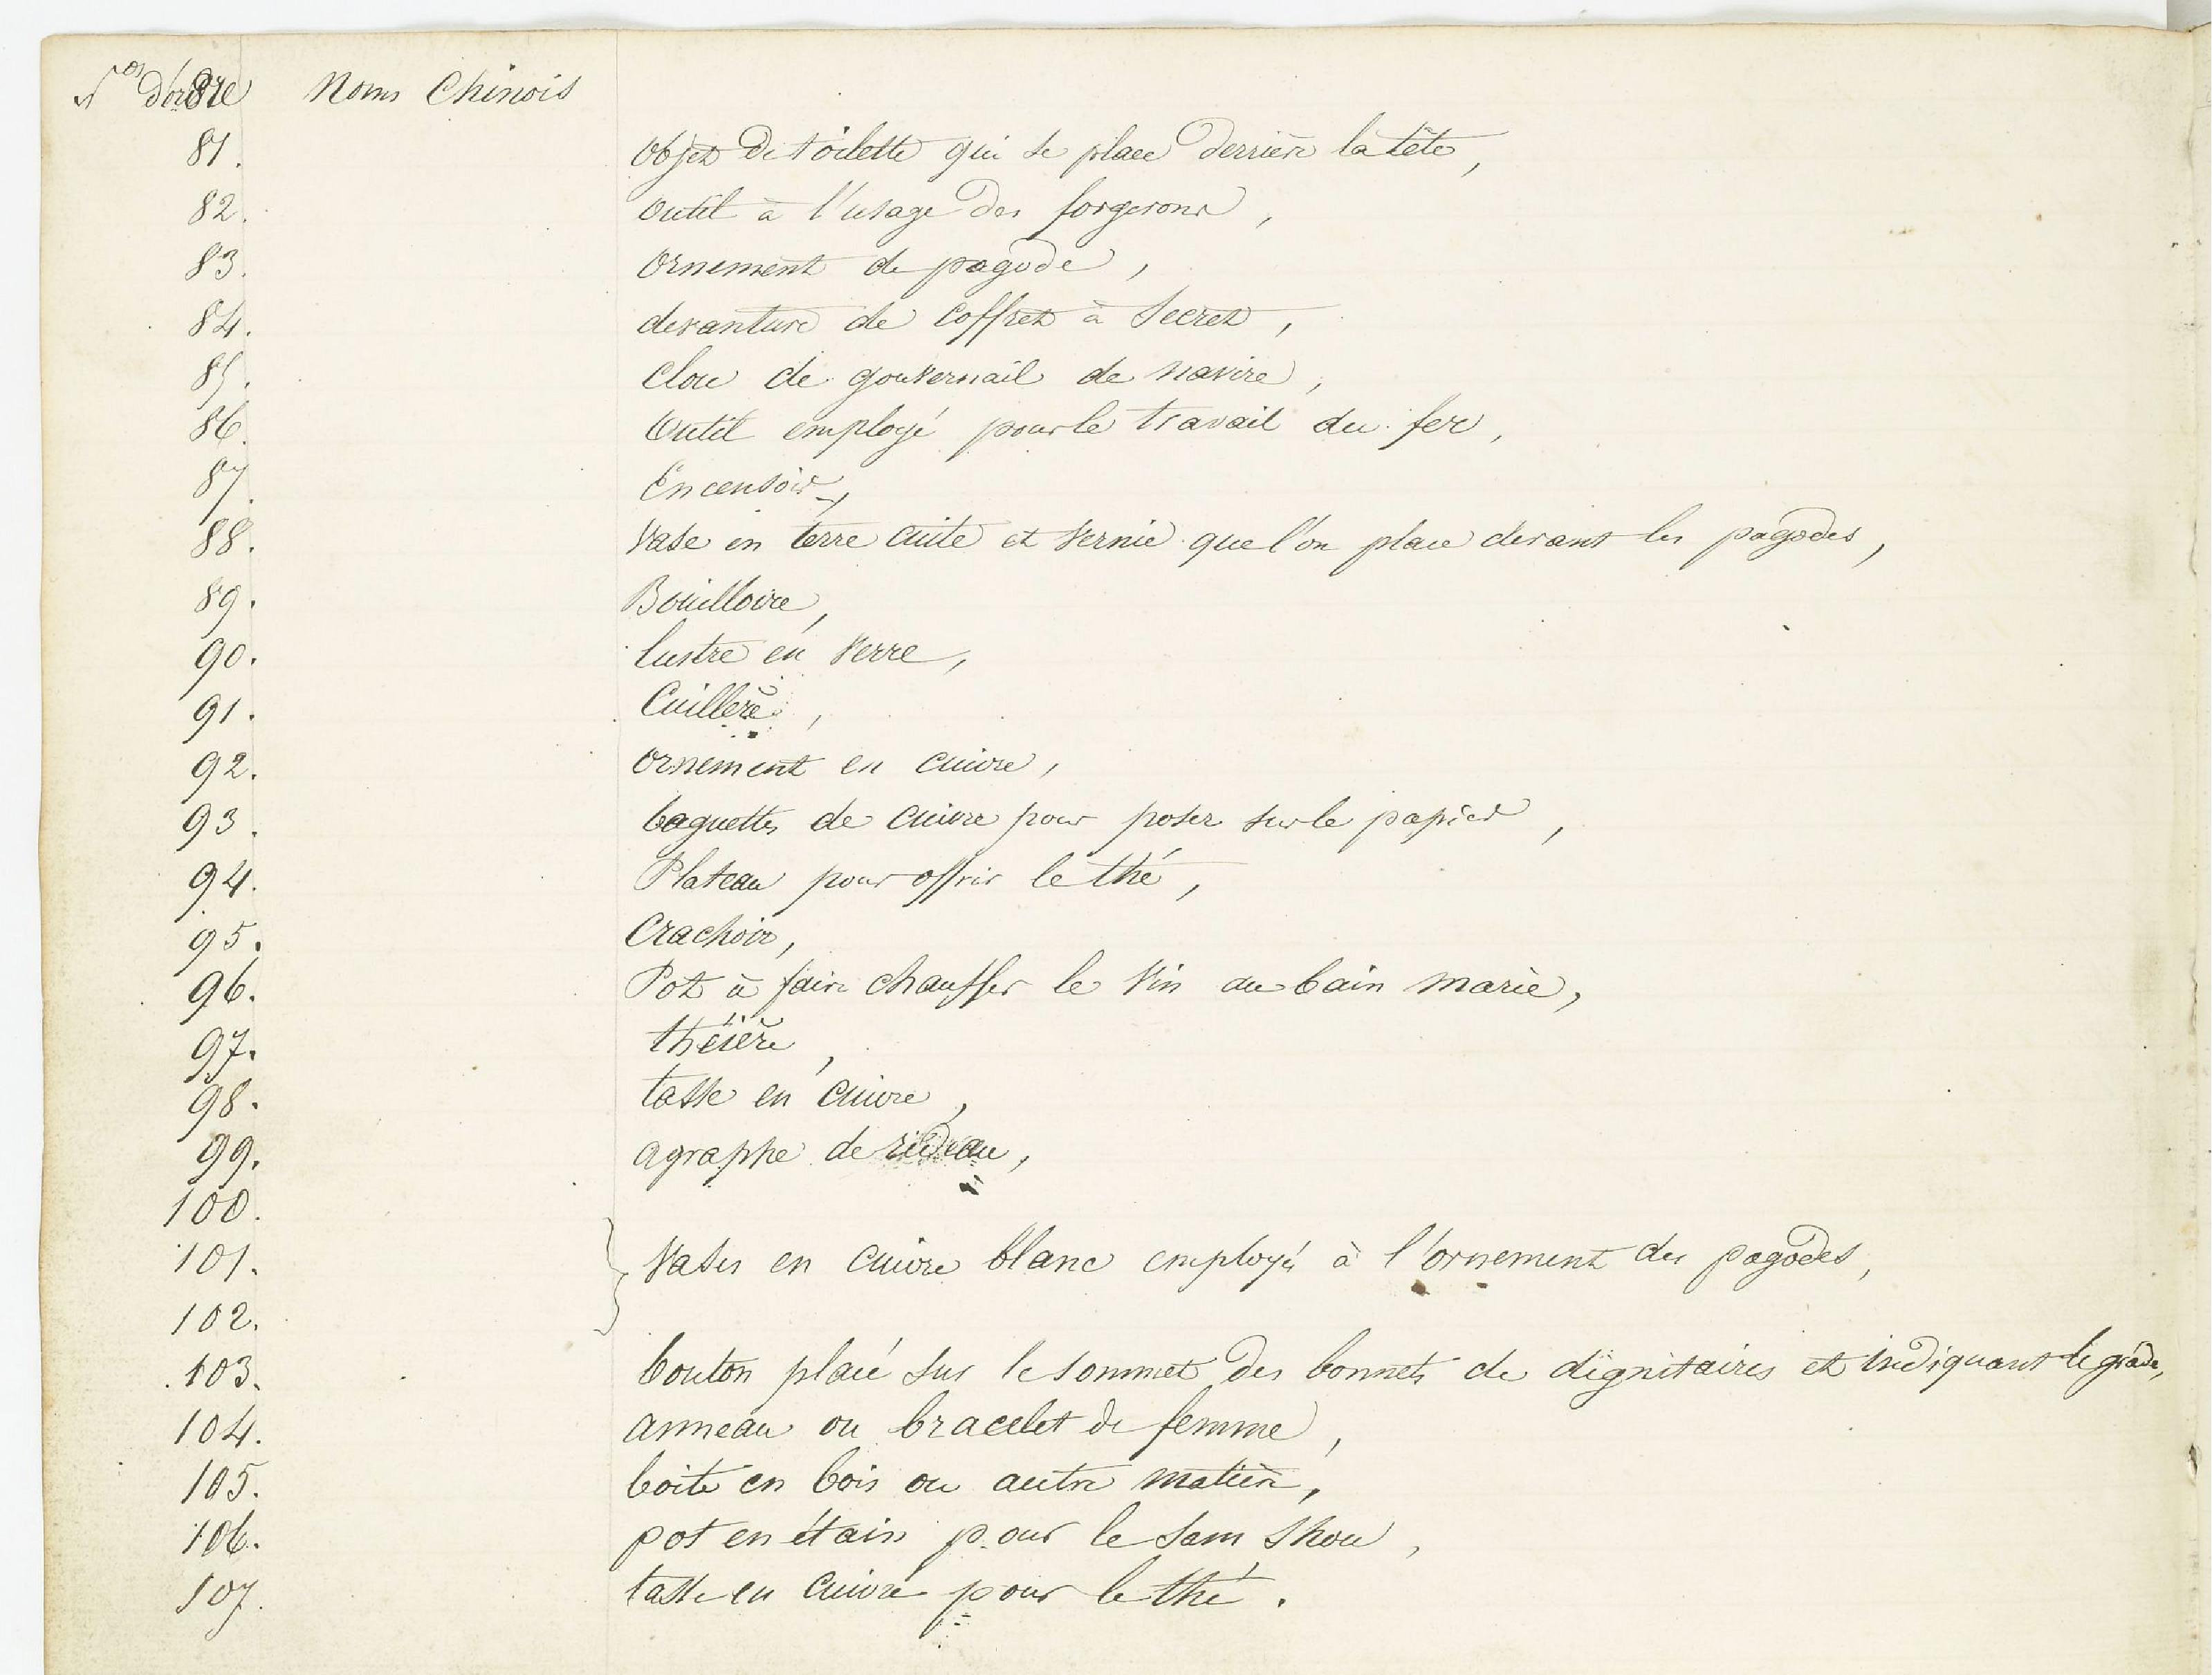 Nos d'ordre Noms Chinois
81. Objet de toilette qui se place derrière la tête,
82. Outil à l'usage des forgerons,
83. Ornement de pagode,
84. devanture de coffret à secret,
85. Clou de gouvernail de navire,
86. Outil employé pour le travail du fer,
87. Encensoir,
88. Vase en terre cuite et vernie que l'on place devant les pagodes,
89. Bouilloire,
90. lustre en verre,
91. Cuillère,
92. Ornement en cuivre,
93. baguettes de cuivre pour poser sur le papier,
94. Plateau pour offrir le thé,
95. Crachoir,
96. Pot à faire chauffer le vin au bain marie,
97. théière,
98. tasse en cuivre,
99. agraphe de rideau,
100.
101. Vases en cuivre blanc employés à l'ornement des pagodes,
102.
103. bouton placé sur le sommet des bonnets de dignitaires et indiquant le grade,
104. anneau ou bracelet de femme,
105. boite en bois ou autre matière,
106. pot en étain pour le Sam Shou,
107. tasse en cuivre pour le thé.